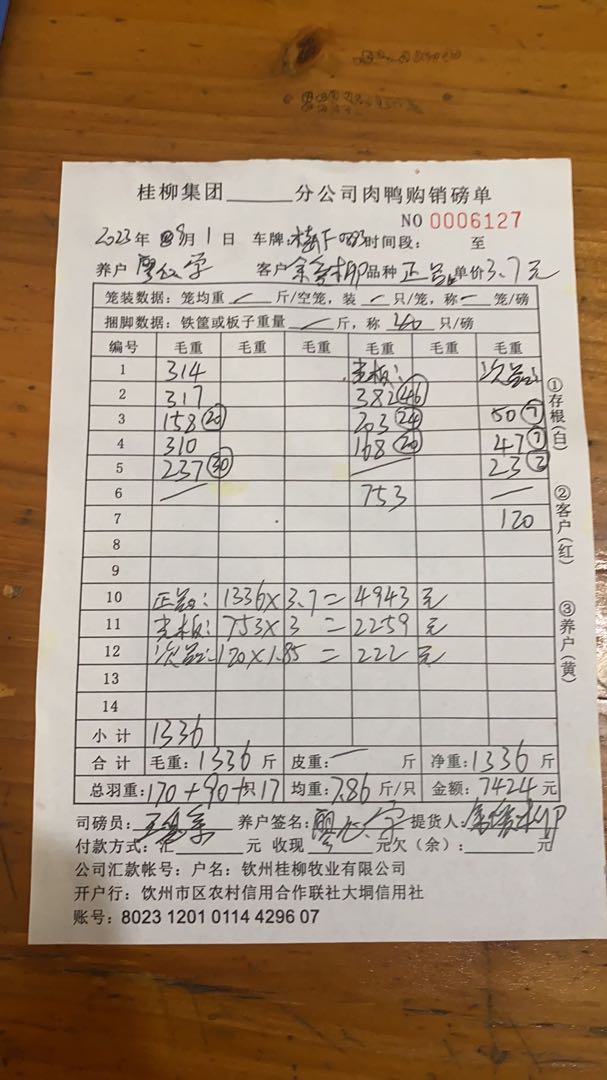 桂柳集团______分公司肉鸭购销磅单
NO 0006127
2023年 9月1日 车牌: 时间段: 至
养户 学 客户 余 柳 品种 正品 单价 3.7元
笼装数据: 笼均重 / 斤/空笼, 装 / 只/笼, 称 / 笼/磅
捆脚数据: 铁筐或板子重量 / 斤, 称 40 只/磅
编号 毛重 毛重 毛重 毛重 毛重 毛重
1 314 光板: 次品:
2 317 382 (46)
3 158 (20) 203 (24) 50 (7)
4 310 168 (20) 47 (7)
5 237 (30) / 23 (3)
6 / 753 /
7 120
8
9
10 正品: 1336×3.7= 4943 元
11 光板: 753×3 = 2259 元
12 次品: 120×1.85 = 222 元
13
14
小计 1336
合计 毛重: 1336 斤 皮重: 一 斤 净重: 1336 斤
总羽重: 170+90+只17 均重: 7.86 斤/只 金额: 7424 元
司磅员: 养户签名: 廖 学 提货人:
付款方式: 元 收现 元欠(余): 元
公司汇款帐号: 户名: 钦州桂柳牧业有限公司
开户行: 钦州市区农村信用合作联社大垌信用社
账号: 8023 1201 0114 4296 07
①存根(白)
②客户(红)
③养户(黄)